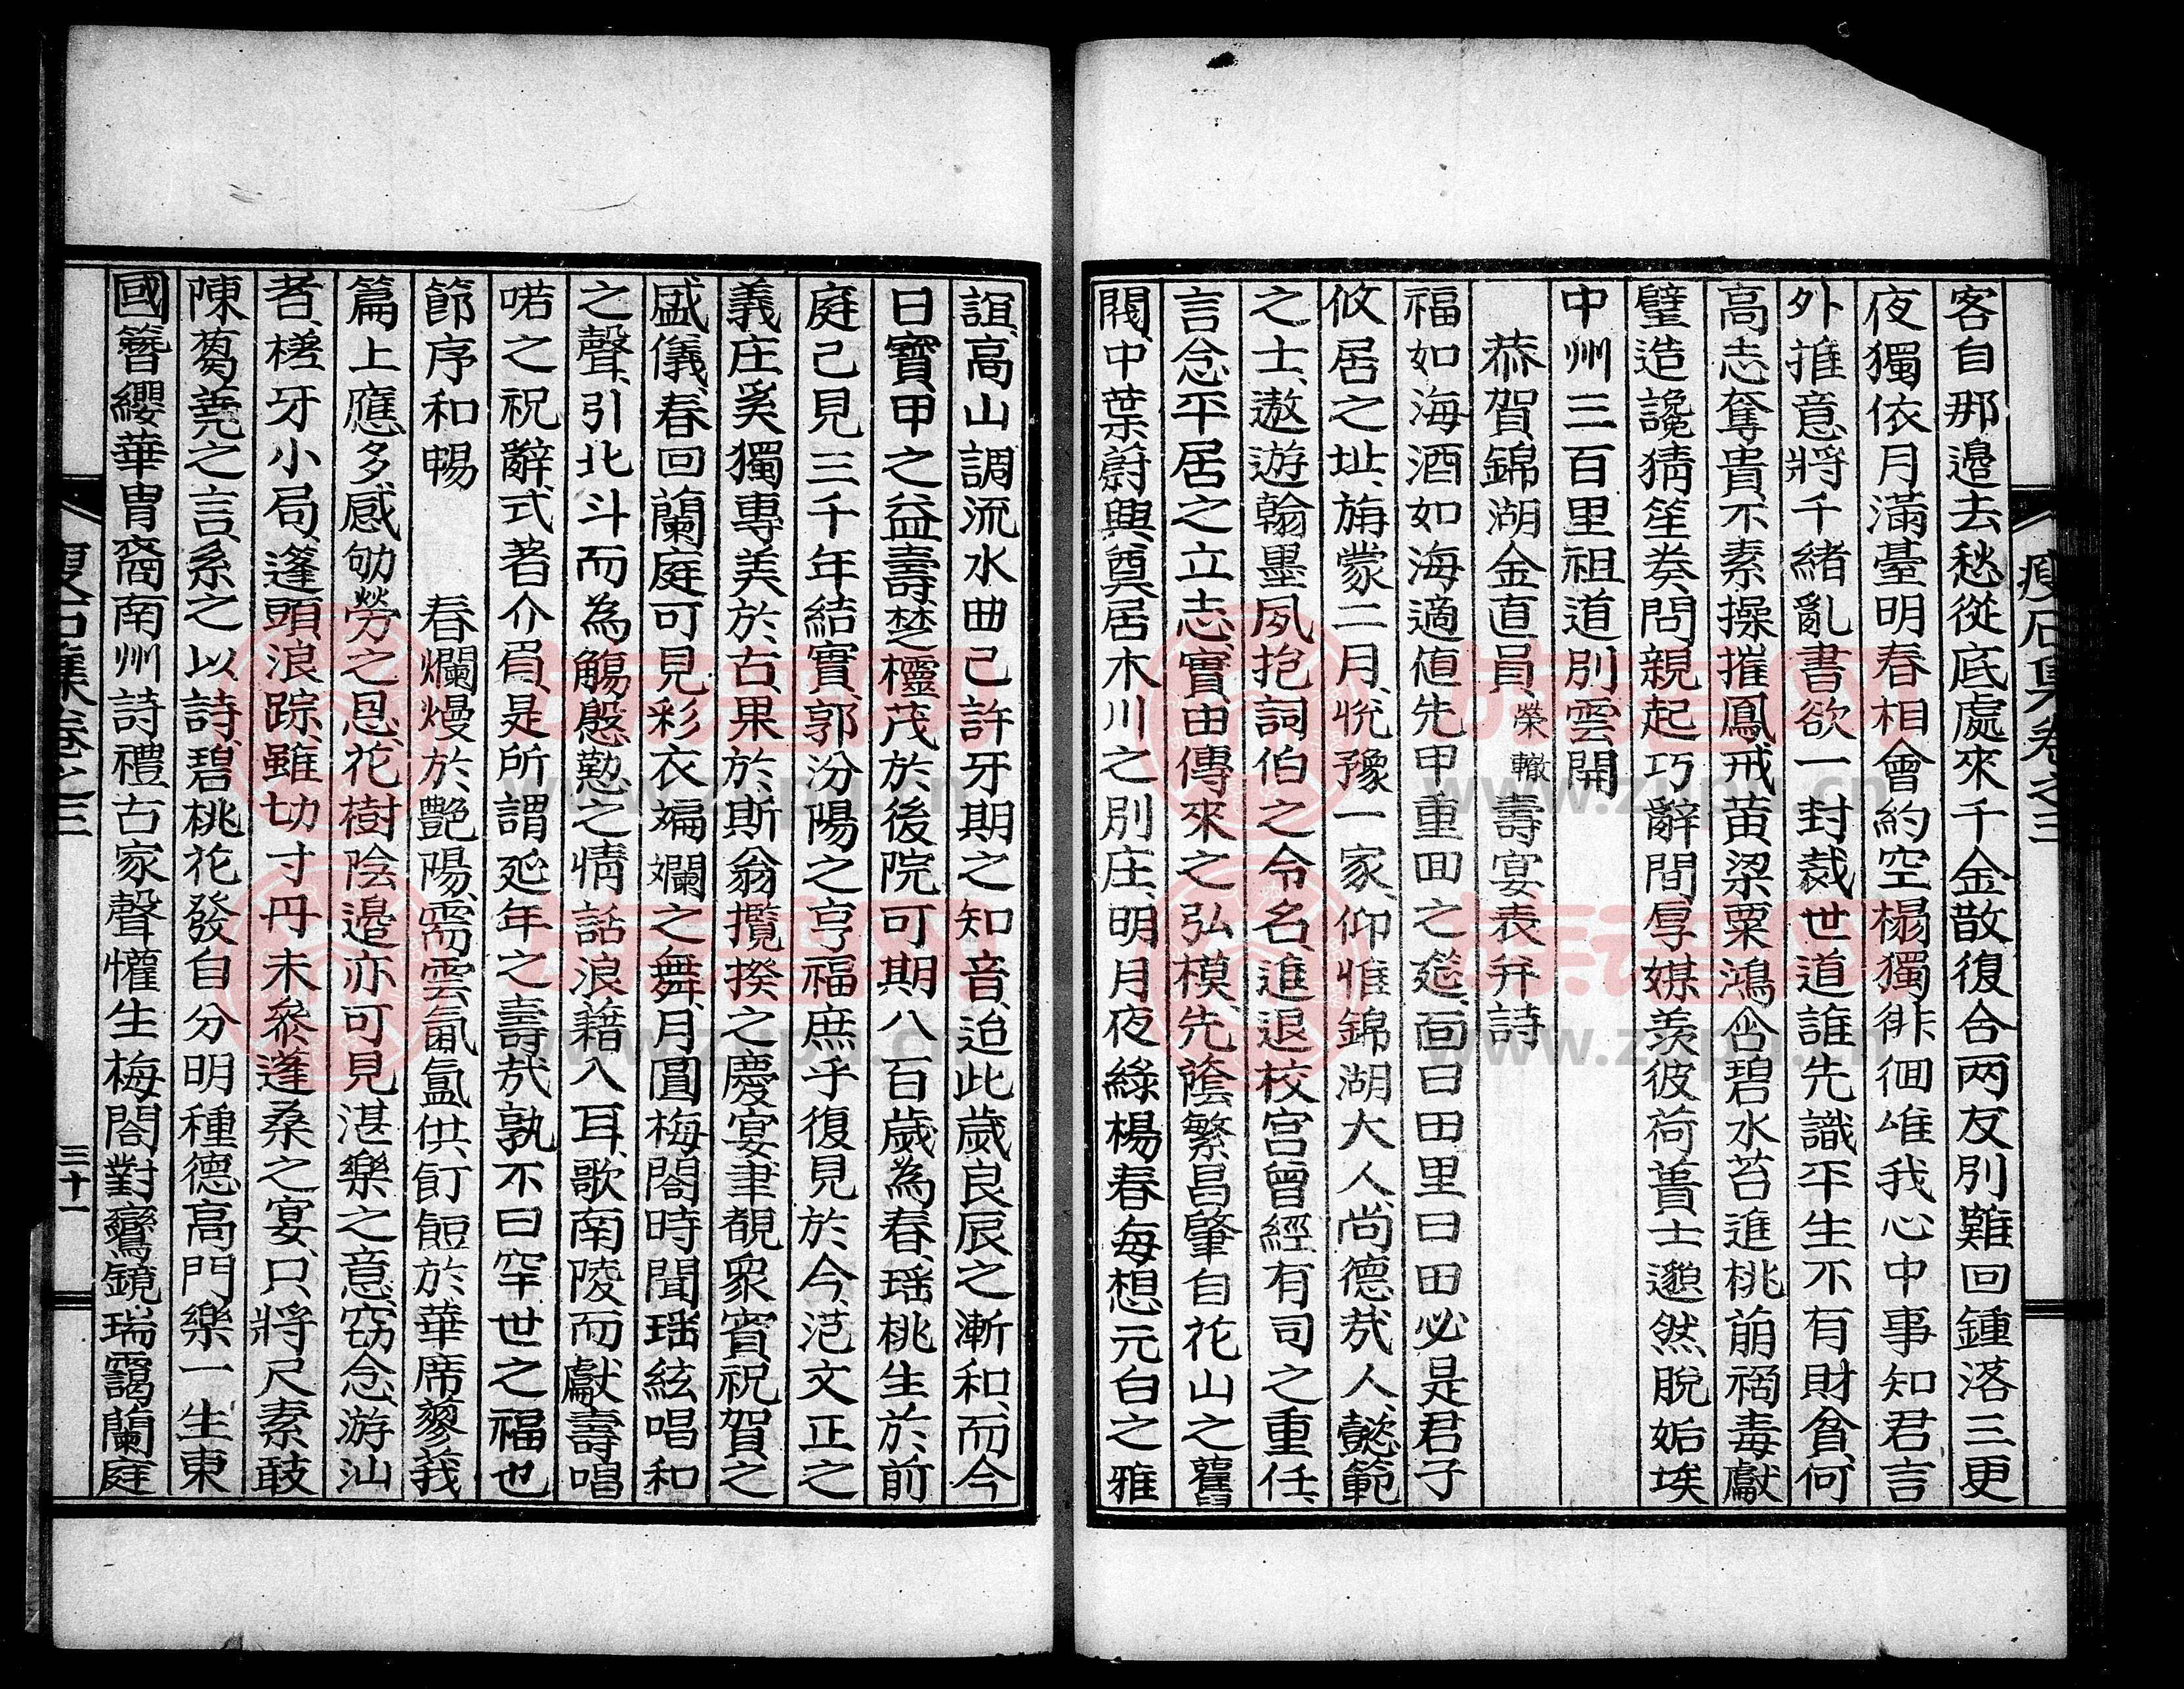 客自那邊去愁從底處來千金散復合兩友別難回鍾落三更
夜獨依月滿臺明春相會約空榻獨徘徊唯我心中事知君言
外推意將千緒亂書欲一封裁世道誰先識平生不有財貧何
高志奪貴不素操摧鳳戒黃粱粟鴻含碧水苔進桃萠禍毒獻
璧造讒猜筌奏問親起巧辭間厚媒羨彼荷蕢士邈然脫垢埃
中州三百里祖道別雲開
恭賀錦湖金直員榮轍壽宴表幷詩
福如海酒如海適値先甲重回之筵面曰田里曰田必是君子
攸居之址旃蒙二月悅豫一家仰惟錦湖大人尚德哉人懿範
之士遨遊翰墨夙抱詞伯之令名進退校宮曾經有司之重任
言念平居之立志實由傳來之弘模先蔭繁昌肇自花山之舊
閥中葉蔚興奠居木川之別庄明月夜綠楊春每想元白之雅
誼高山調流水曲已許牙期之知音迨此歲良辰之漸和而今
日寶甲之益壽楚櫺茂於後院可期八百歲為春瑤桃生於前
庭已見三千年結實郭汾陽之亨福庶乎復見於今范文正之
義庄奚獨專美於古果於斯翁攬揆之慶宴聿覩衆賓祝賀之
盛儀春回蘭庭可見彩衣斒斕之舞月圓梅閤時聞瑤絃唱和
之聲引北斗而為觴慇懃之情話浪藉入耳歌南陵而獻壽唱
喏之祝辭式著介眉是所謂延年之壽哉孰不曰罕世之福也
節序和暢　春爛熳於艷陽需雲氤氳供飣餖於華席蓼莪
篇上應多感劬勞之恩花樹陰邊亦可見湛樂之意窃念游汕
者槎牙小局蓬頭浪踪雖切寸丹未參蓬桑之宴只將尺素敢
陳蒭蕘之言系之以詩碧桃花發自分明種德高門樂一生東
國簪纓華胄裔南州詩禮古家聲懽生梅閤對鸞鏡瑞靄蘭庭
瘦石集卷之三
三十一
族谱网
www.zupu.cn